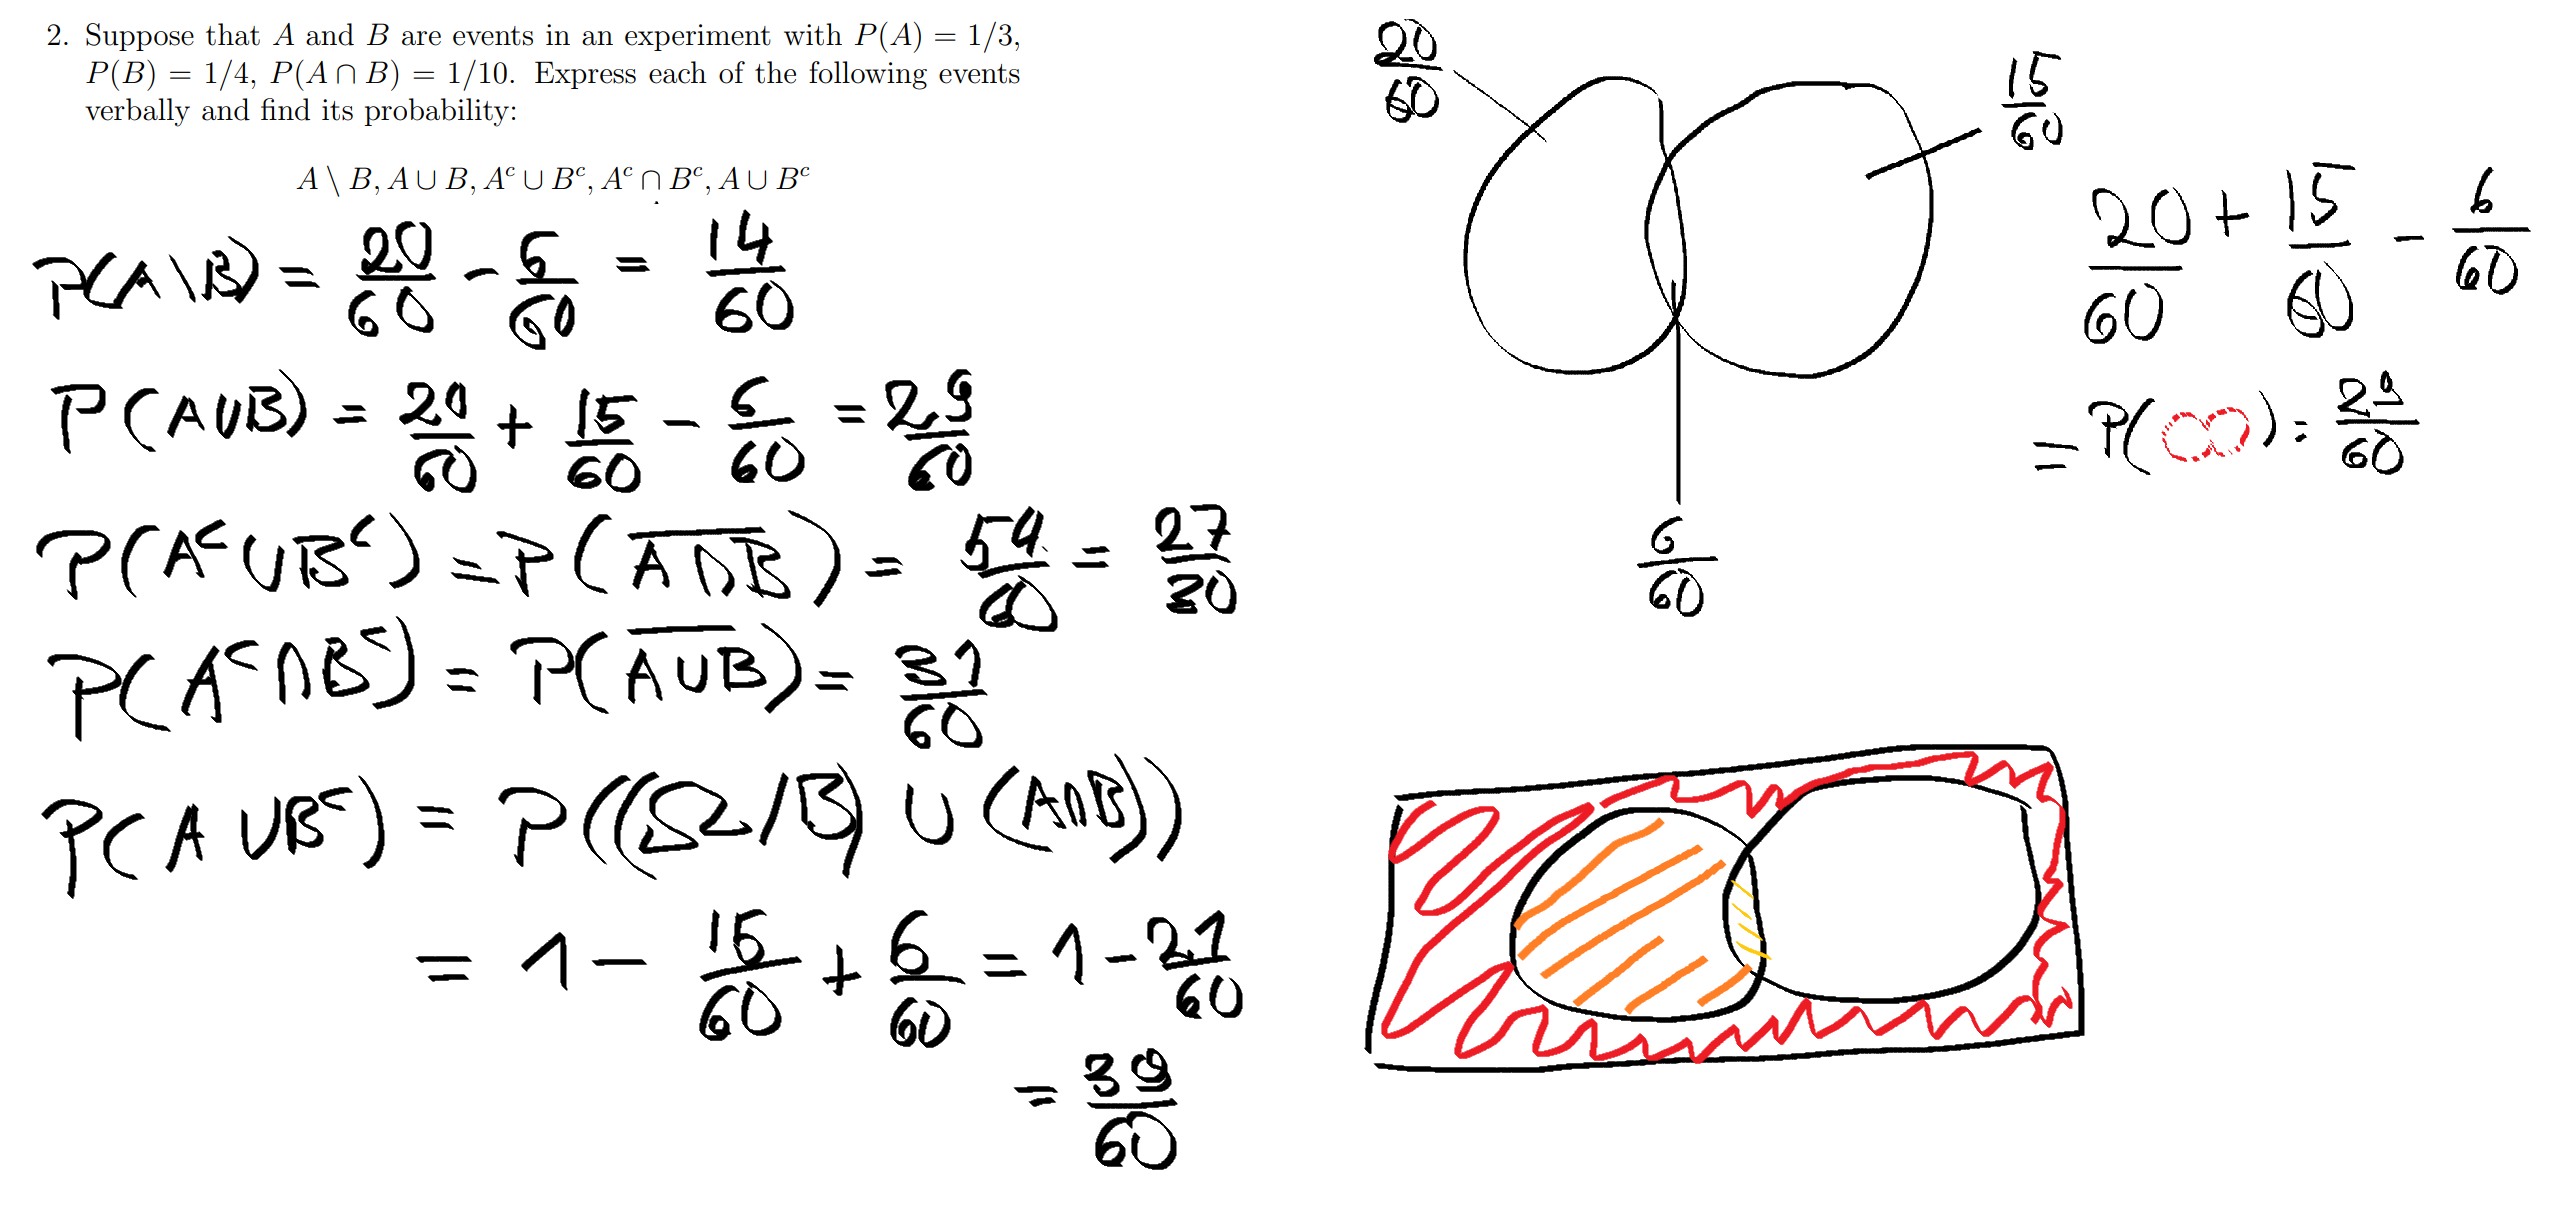 2. Suppose that A and B are events in an experiment with P(A) = 1/3,
P(B) = 1/4, P(A ∩ B) = 1/10. Express each of the following events
verbally and find its probability:
A \ B, A ∪ B, Aᶜ ∪ Bᶜ, Aᶜ ∩ Bᶜ, A ∪ Bᶜ
P(A\B) = 20/60 - 6/60 = 14/60
P(A∪B) = 20/60 + 15/60 - 6/60 = 29/60
P(Aᶜ∪Bᶜ) = P(A̅∩̅B̅) = 54/60 = 27/30
P(Aᶜ∩Bᶜ) = P(A̅∪̅B̅) = 31/60
P(A∪Bᶜ) = P((Ω/B) ∪ (A∩B))
= 1 - 15/60 + 6/60 = 1 - 21/60
= 39/60
20/60
15/60
6/60
20/60 + 15/60 - 6/60
= P(∞) = 29/60